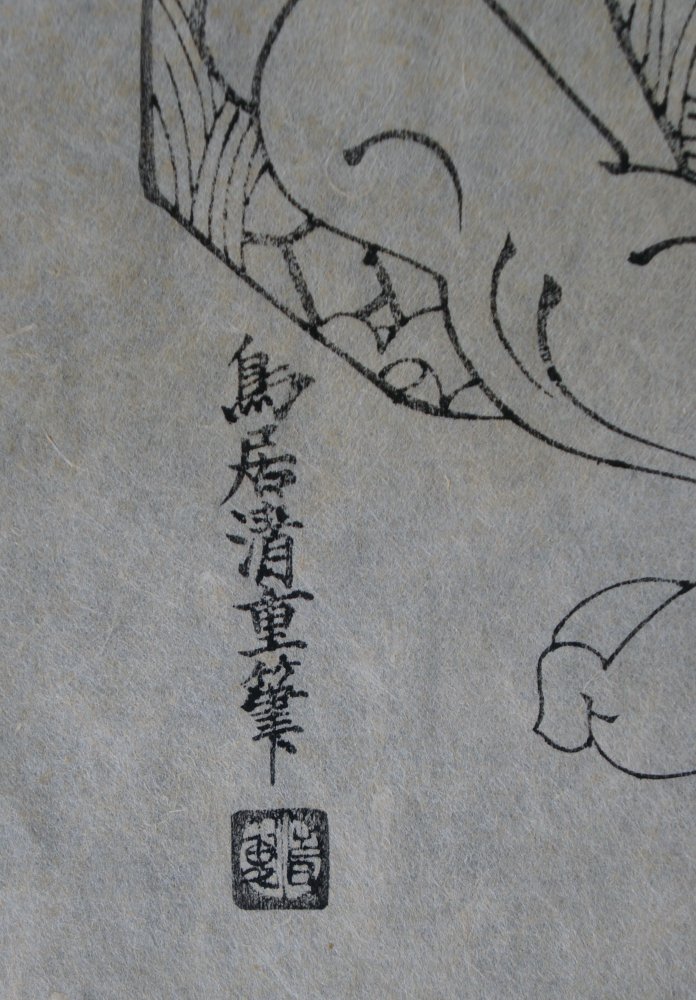 鳥居清重筆
清重